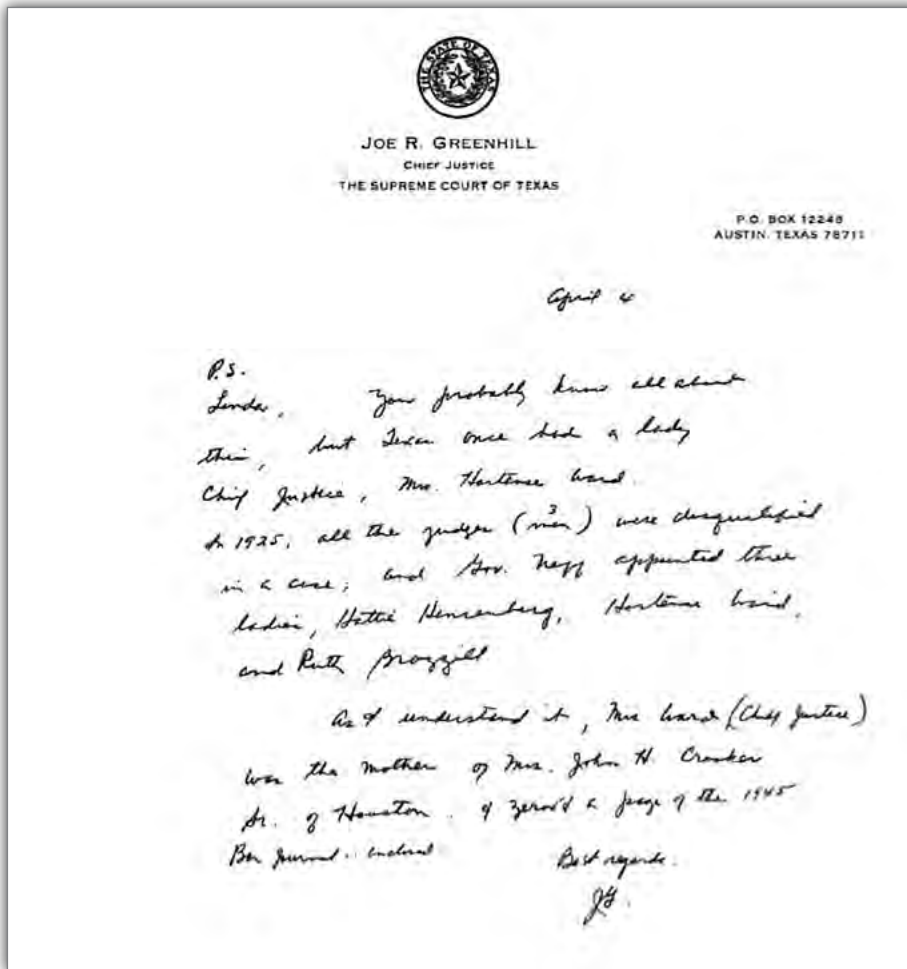 THE STATE OF TEXAS
JOE R. GREENHILL
CHIEF JUSTICE
THE SUPREME COURT OF TEXAS
P.O. BOX 12248
AUSTIN, TEXAS 78711
April 4
P.S.
Linda, You probably know all about
this, but Texas once had a lady
Chief Justice, Mrs. Hortense Ward.
In 1925, all the judges (3 men) were disqualified
in a case; and Gov. Neff appointed three
ladies, Hattie Hensenberg, Hortense Ward,
and Ruth Brazzill
As I understand it, Mrs Ward (Chief Justice)
was the mother of Mrs. John H. Crooker
Sr. of Houston. I zerox'd a page of the 1945
Bar Journal - enclosed
Best regards.
JG.